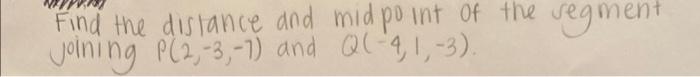 Find the distance and midpoint of the segment
joining P(2,-3,-7) and Q(-4,1,-3).